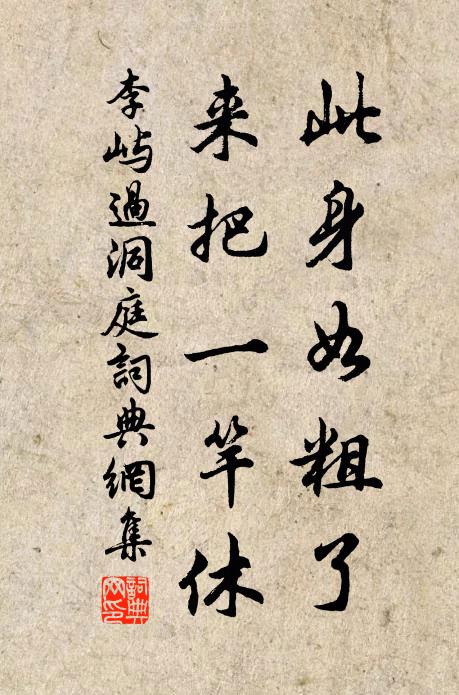 此身如粗了
来把一竿休
李屿過洞庭詞典網集
詞典网印